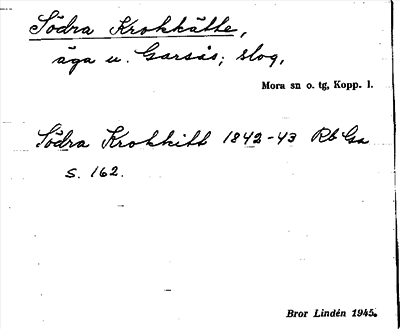 Södra Krokkätte,
äga u. Garsås; slog,
Mora sn o. tg, Kopp. l.
Södra Krokkitt 1842-43 Rb Gsa
s. 162.
Bror Lindén 1945.